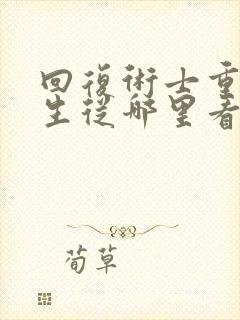 回復術士重
生從哪里看
荀草